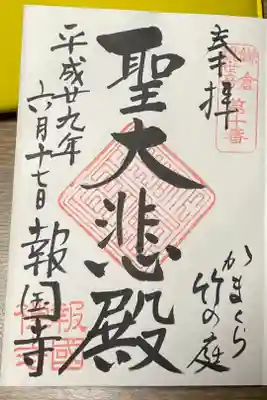 奉拝
鎌倉
第十番
かまくら
竹の庭
聖大悲殿
平成廿九年
六月十七日
報国寺
報國